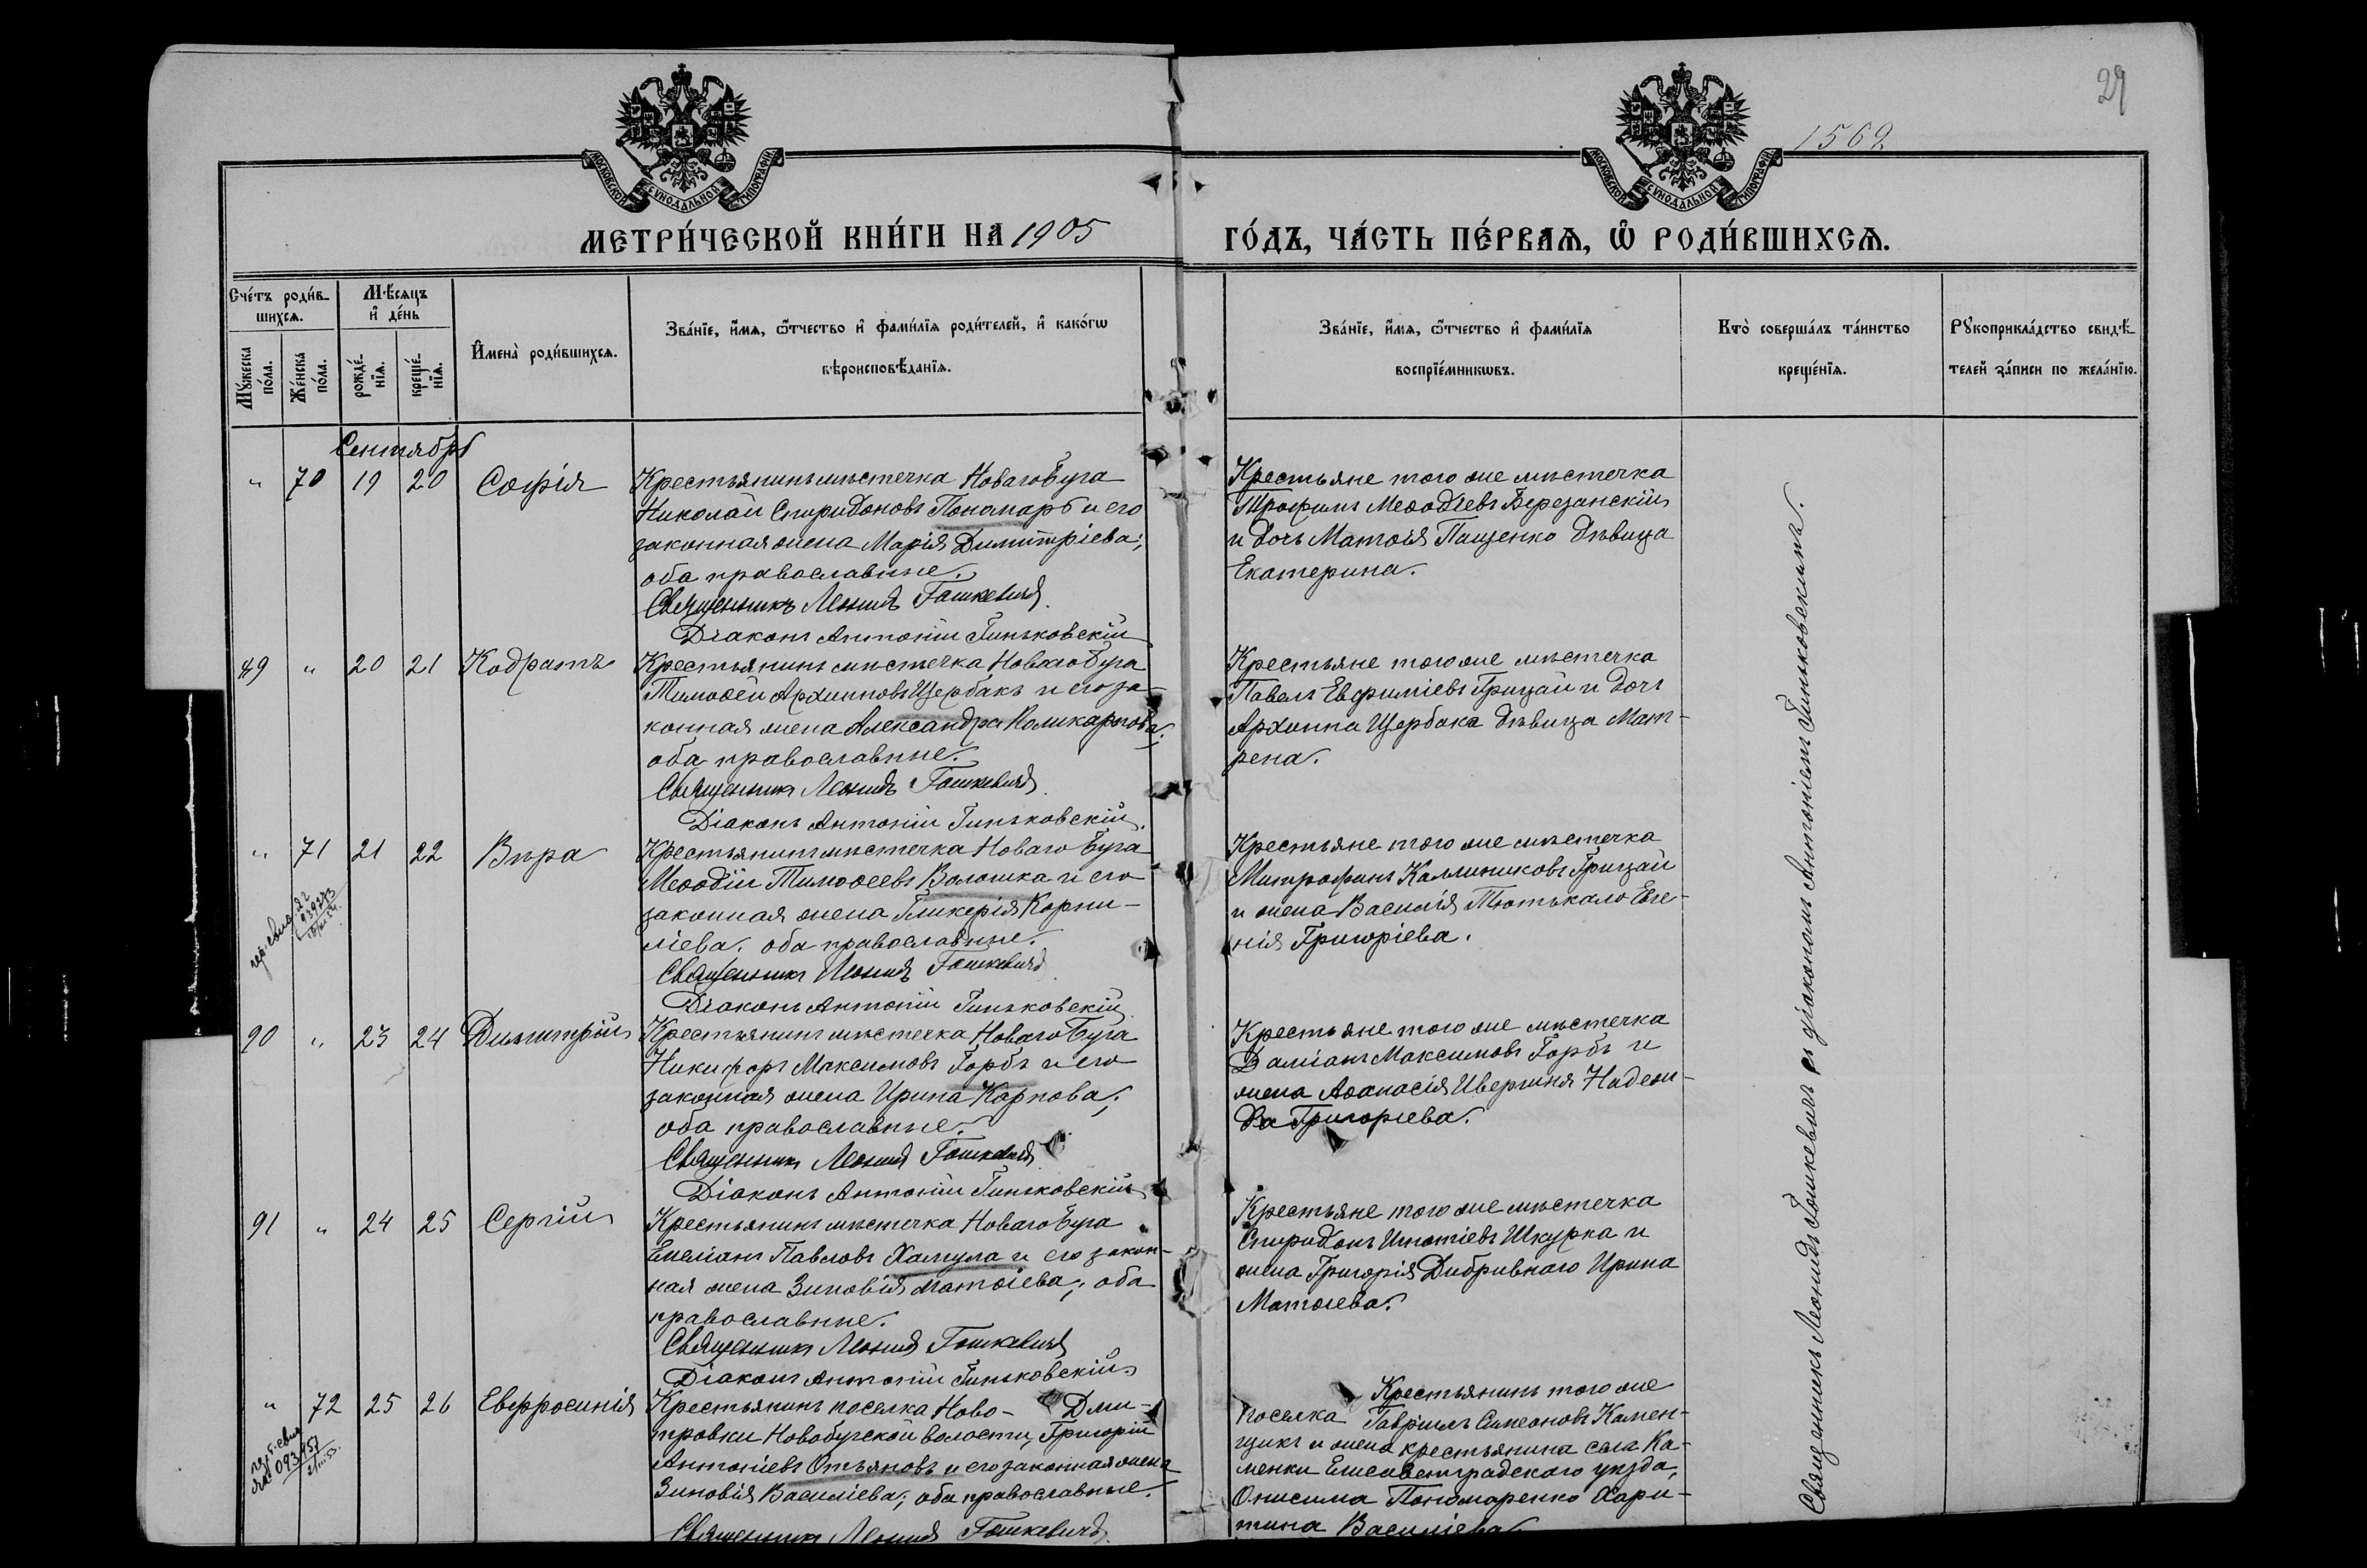 29
1562
МОСКОВСКОЙ СѴНОДАЛЬНОЙ ТИПОГРАФІИ
МОСКОВСКОЙ СѴНОДАЛЬНОЙ ТИПОГРАФІИ
МЕТРИ́ЧЕСКОЙ КНИ́ГИ НА 1905
ГО́ДЪ, ЧА́СТЬ ПЕ́РВАѦ, Ѡ҆ РОДИ́ВШИХСѦ.
Сче́тъ роди́в-
шихсѧ.
Мѣ́сѧцъ
и҆ де́нь
Мꙋ́жеска
по́ла.
Же́нска
по́ла.
рожде́-
нїѧ.
креще́-
нїѧ.
И҆мена̀ роди́вшихсѧ.
Зва́нїе, и҆́мѧ, ѻ҆́тчество и҆ фами́лїѧ роди́телей, и҆ како́гѡ
вѣроисповѣ́данїѧ.
Зва́нїе, и҆́мѧ, ѻ҆́тчество и҆ фами́лїѧ
воспрїе́мникѡвъ.
Кто̀ соверша́лъ та́инство
креще́нїѧ.
Рꙋкоприкла́дство свидѣ́-
телей за́писи по жела́нїю.
Сентябрь
" 70 19 20 Софія
Крестьянинъ мѣстечка Новаго Буга
Николай Спиридоновъ Пономарь и его
законная жена Марія Димитріева;
оба православные.
Священникъ Леонидъ Гошкевичъ
Діаконъ Антоній Гиньковскій
Крестьяне того же мѣстечка
Трофимъ Меѳодіевъ Березанскій
и дочь Матѳія Пащенко дѣвица
Екатерина.
89 " 20 21 Кодратъ
Крестьянинъ мѣстечка Новаго Буга
Тимоѳей Архиповъ Щербакъ и его за-
конная жена Александра Поликарпова;
оба православные.
Священникъ Леонидъ Гошкевичъ
Діаконъ Антоній Гиньковскій.
Крестьяне того же мѣстечка
Павелъ Евфиміевъ Грицай и дочь
Архиппа Щербака дѣвица Мат-
рена.
" 71 21 22 Вѣра
Крестьянинъ мѣстечка Новаго Буга
Меѳодій Тимоѳеевъ Волошка и его
законная жена Гликерія Корни-
ліева. оба православные.
Священникъ Леонидъ Гошкевичъ
Діаконъ Антоній Гиньковскій
Крестьяне того же мѣстечка
Митрофанъ Каллиниковъ Грицай
и жена Василія Тютькало Евге-
нія Григоріева.
90 " 23 24 Димитрій
Крестьянинъ мѣстечка Новаго Буга
Никифоръ Максимовъ Горбъ и его
законная жена Ирина Карпова;
оба православные.
Священникъ Леонидъ Гошкевичъ
Діаконъ Антоній Гиньковскій
Крестьяне того же мѣстечка
Даміанъ Максимовъ Горбъ и
жена Аѳанасія Ивергиня Надеж-
да Григорьева.
91 " 24 25 Сергій
Крестьянинъ мѣстечка Новаго Буга
Емеліанъ Павловъ Хамула и его закон-
ная жена Зиновія Матѳіева; оба
православные.
Священникъ Леонидъ Гошкевичъ
Діаконъ Антоній Гиньковскій
Крестьяне того же мѣстечка
Спиридонъ Ипатіевъ Шкурка и
жена Григорія Дибривнаго Ирина
Матѳіева.
" 72 25 26 Евфросинія
Крестьянинъ поселка Ново- Дми-
тровки Новобугской волости, Григорій
Антоніевъ Отьяновъ и его законная жена
Зиновія Василіева; оба православные.
Священникъ Леонидъ Гошкевичъ
Крестьянинъ того же
поселка Гавріилъ Симеоновъ Камен-
щикъ и жена крестьянина села Ка-
менки Елисаветградскаго уѣзда,
Онисима Пономаренко Хари-
тина Василіева.
Священникъ Леонидъ Гошкевичъ съ діакономъ Антоніемъ Гиньковскимъ.